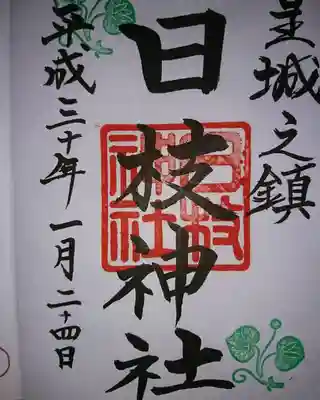 皇城之鎮
日枝神社
日枝
神社
平成三十年一月二十四日